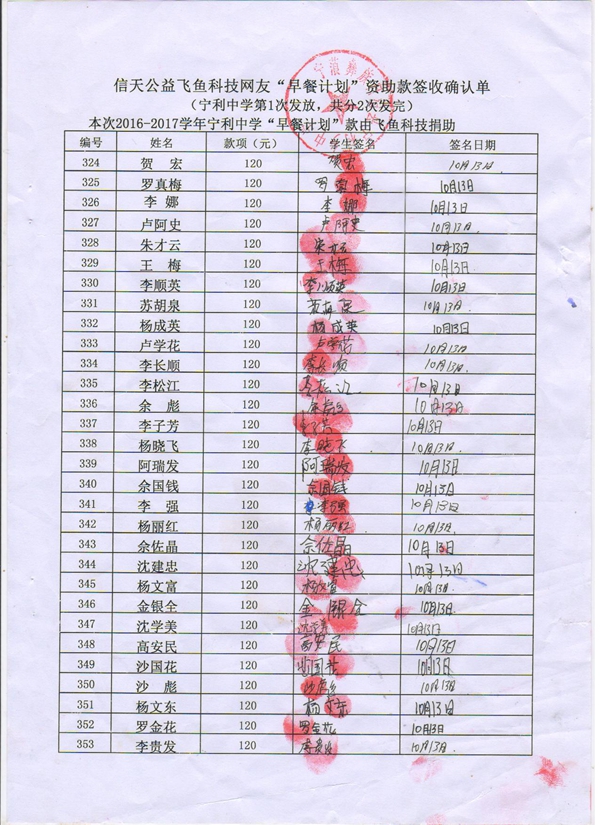 信天公益飞鱼科技网友“早餐计划”资助款签收确认单
（宁利中学第1次发放，共分2次发完）
本次2016-2017学年宁利中学“早餐计划”款由飞鱼科技捐助
编号 姓名 款项（元） 学生签名 签名日期
324 贺 宏 120 贺宏 10月13日.
325 罗真梅 120 罗真梅 10月13日
326 李 娜 120 李 娜 10月13日
327 卢阿史 120 卢阿史 10月13日.
328 朱才云 120 朱才云 10月13日
329 王 梅 120 王梅 10月13日
330 李顺英 120 李顺英 10月13日
331 苏胡泉 120 10月13日.
332 杨成英 120 杨成英 10月13日
333 卢学花 120 卢学花 10月13日.
334 李长顺 120 李长顺 10月13日.
335 李松江 120 李松江 10月13日
336 余 彪 120 10月13日
337 李子芳 120 10月13日
338 杨晓飞 120 李晓飞 10月13日.
339 阿瑞发 120 阿瑞发 10月13日
340 余国钱 120 余国钱 10月13日
341 李 强 120 李强 10月13日
342 杨丽红 120 杨丽红 10月13日.
343 余佐晶 120 余佐晶 10月13日
344 沈建忠 120 沈建忠 10月13日
345 杨文富 120 杨文富 10月13日.
346 金银全 120 金银全 10月13日.
347 沈学美 120 沈学美 10月13日
348 高安民 120 高安民 10月13日
349 沙国花 120 沙国花 10月13日
350 沙 彪 120 沙彪 10月13日
351 杨文东 120 杨文东 10月13日
352 罗金花 120 罗金花 10月13日
353 李贵发 120 李贵发 10月13日.